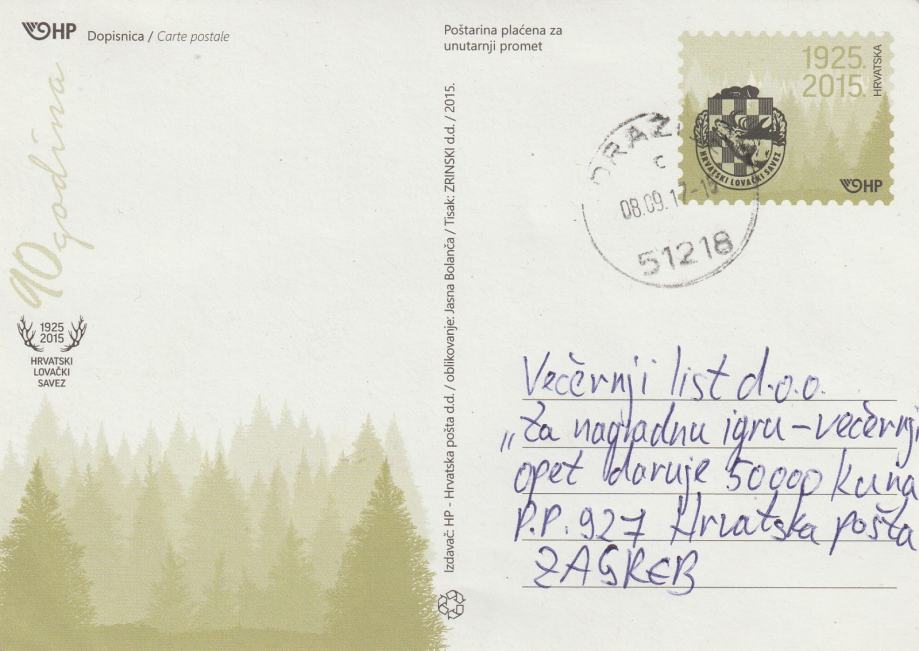 HP
Dopisnica / Carte postale
Poštarina plaćena za
unutarnji promet
1925.
2015.
HRVATSKA
HRVATSKI LOVAČKI SAVEZ
HP
08.09.17-15
51218
90 godina
1925
2015
HRVATSKI
LOVAČKI
SAVEZ
Izdavač: HP - Hrvatska pošta d.d. / oblikovanje: Jasna Bolanča / Tisak: ZRINSKI d.d. / 2015.
Večernji list d.o.o.
„Za nagradnu igru – večernji
opet daruje 50000 kuna
P.P. 927 Hrvatska pošta
ZAGREB